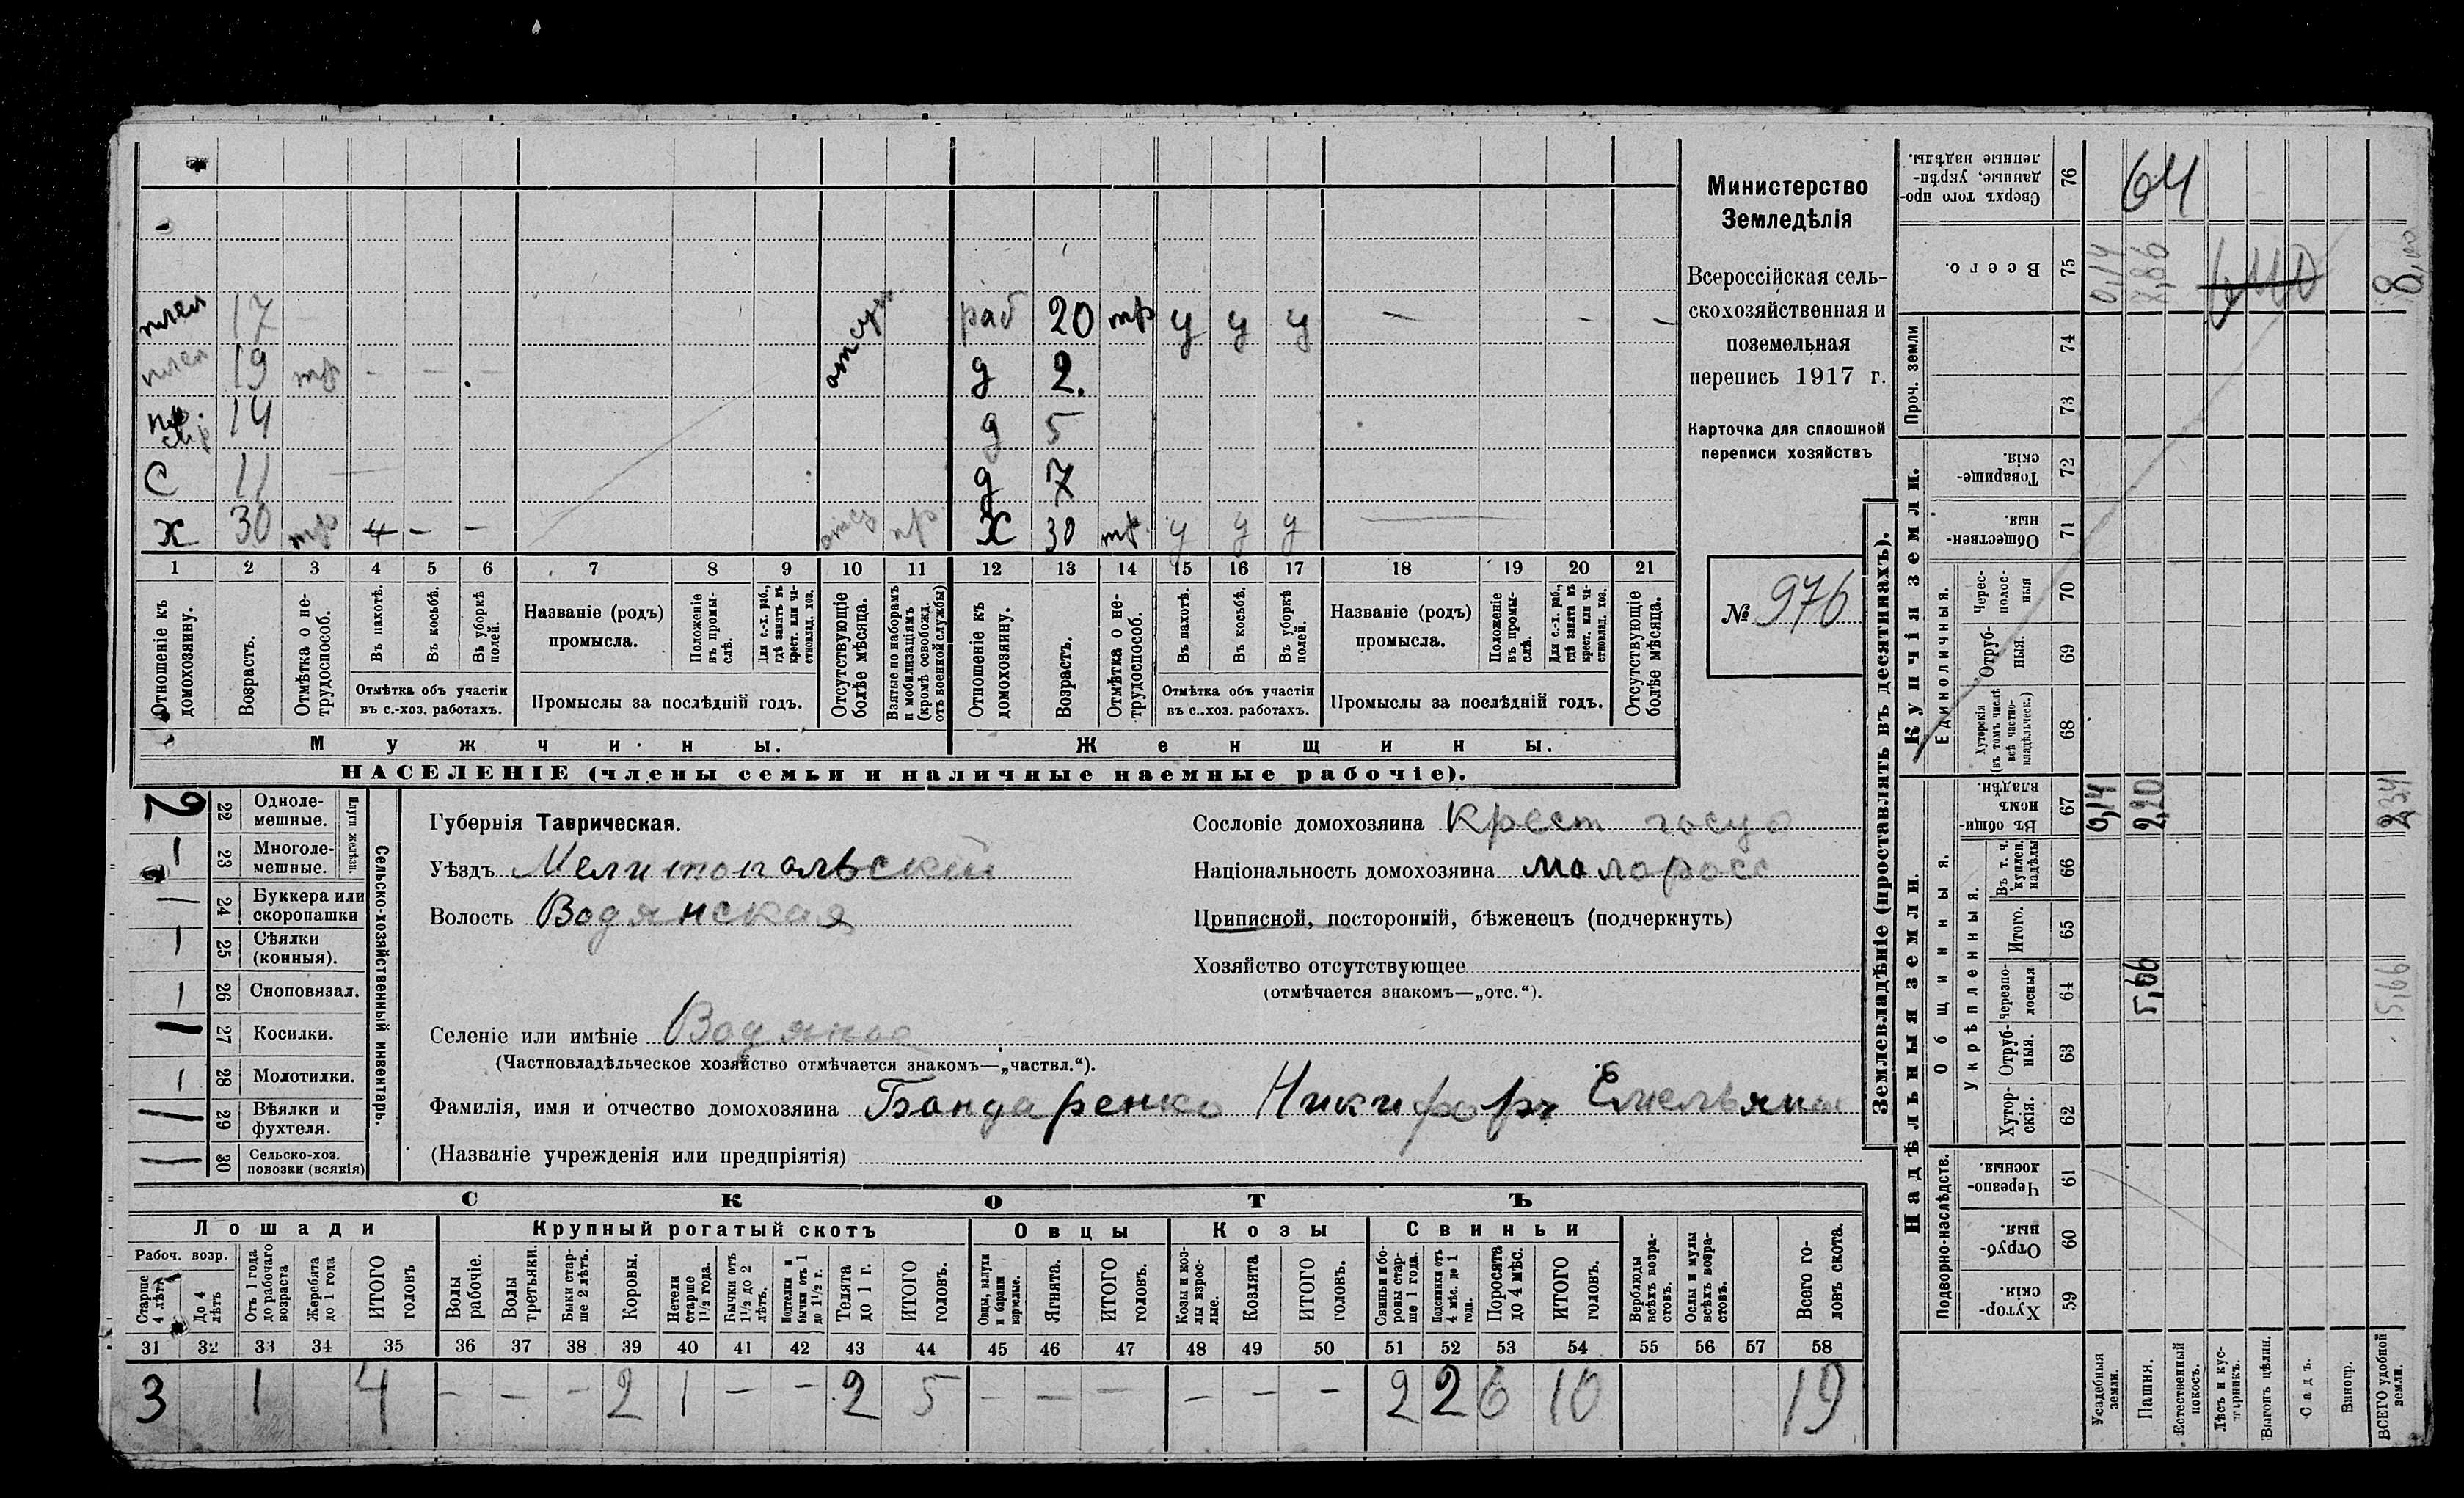 плен 17 отсут раб 20 тр у у у — - —
плен 19 тр - — - д 2.
14 д 5
С 11 д 7
х 30 тр - - отсу пр. х 30 тр. у у у
1 2 3 4 5 6 7 8 9 10 11 12 13 14 15 16 17 18 19 20 21
Отношеніе къ домохозяину.
Возрастъ.
Отмѣтка о не-
трудоспособ.
Въ пахотѣ.
Въ косьбѣ.
Въ уборкѣ полей.
Отмѣтка объ участіи
въ с.-хоз. работахъ.
Названіе (родъ)
промысла.
Положеніе
въ промы-
слѣ.
Для с.-х. раб.,
гдѣ занятъ въ
крест. или ча-
стновлад. хоз.
Промыслы за послѣдній годъ.
Отсутствующіе
болѣе мѣсяца.
Взятые по наборамъ
и мобилизаціямъ
(кромѣ освобожд.
отъ военной службы)
Отношеніе къ
домохозяину.
Возрастъ.
Отмѣтка о не-
трудоспособ.
Въ пахотѣ.
Въ косьбѣ.
Въ уборкѣ
полей.
Отмѣтка объ участіи
въ с..хоз. работахъ.
Названіе (родъ)
промысла.
Положеніе
въ промы-
слѣ.
Для с.-х. раб.,
гдѣ занята въ
крест. или ча-
стновлад. хоз.
Промыслы за послѣдній годъ.
Отсутствующіе
болѣе мѣсяца.
Мужчины.
Женщины.
НАСЕЛЕНІЕ (члены семьи и наличные наемные рабочіе).
Министерство
Земледѣлія
Всероссійская сель-
скохозяйственная и
поземельная
перепись 1917 г.
Карточка для сплошной
переписи хозяйствъ
№ 976
2 22 Одноле-
мешные.
— 23 Многоле-
мешные.
Плуги желѣзн.
— 24 Буккера или
скоропашки
— 25 Сѣялки
(конныя).
— 26 Сноповязал.
— 27 Косилки.
— 28 Молотилки.
— 29 Вѣялки и
фухтеля.
— 30 Сельско-хоз.
повозки (всякія)
Сельско-хозяйственный инвентарь.
Губернія Таврическая.
Уѣздъ Мелитопольскій
Волость Водянская
Селеніе или имѣніе Водяное
(Частновладѣльческое хозяйство отмѣчается знакомъ—„частвл.“).
Фамилія, имя и отчество домохозяина Бондаренко Никифоръ Емельянов
(Названіе учрежденія или предпріятія)
Сословіе домохозяина Крест госуд
Національность домохозяина малоросс
Приписной, посторонній, бѣженецъ (подчеркнуть)
Хозяйство отсутствующее
(отмѣчается знакомъ—„отс.“).
СКОТЪ
Лошади
Крупный рогатый скотъ
Овцы
Козы
Свиньи
Рабоч. возр.
Старше
4 лѣтъ
До 4
лѣтъ
Отъ 1 года
до рабочаго
возраста
Жеребята
до 1 года
ИТОГО
головъ
Волы
рабочіе.
Волы
третьяки.
Быки стар-
ше 2 лѣтъ.
Коровы.
Нетели
старше
1½ года.
Бычки отъ
1½ до 2
лѣтъ.
Подтелки и
бычки отъ 1
до 1½ г.
Телята
до 1 г.
ИТОГО
головъ.
Овцы, валухи
и бараны
взрослые.
Ягнята.
ИТОГО
головъ.
Козы и коз-
лы взрос-
лые.
Козлята
ИТОГО
головъ.
Свиньи и бо-
ровы стар-
ше 1 года.
Подсвинки отъ
4 мѣс. до 1
года.
Поросята
до 4 мѣс.
ИТОГО
головъ.
Верблюды
всѣхъ возра-
стовъ.
Ослы и мулы
всѣхъ возра-
стовъ.
Всего го-
ловъ скота.
31 32 33 34 35 36 37 38 39 40 41 42 43 44 45 46 47 48 49 50 51 52 53 54 55 56 57 58
3 1 4 - - - 2 1 - - 2 5 - - - - - - 2 2 6 10 19
Землевладѣніе (проставлять въ десятинахъ).
Сверхъ того про-
данные, укрѣп-
ленные надѣлы.
76 64
Всего.
75 0,14 7,86 8,00
Купчія земли.
Проч. земли
74
73
Товарище-
скія.
72
Обществен-
ныя.
71
Единоличныя.
Черес-
полос-
ныя
70
Отруб-
ныя.
69
Хуторскія
(въ томъ числѣ
всѣ частно-
владѣльческ.)
68
Надѣльныя земли.
Общинныя.
Въ общин-
номъ
владѣн.
67 0,14 2,20 2,34
Укрѣпленныя.
Въ т. ч.
куплен.
надѣлы
66
Итого.
65
черезпо-
лосныя
64 5,66 5,66
Отруб-
ныя.
63
Хутор-
скія.
62
Подворно-наслѣдств.
Черезпо-
лосныя.
61
Отруб-
ныя.
60
Хутор-
скія.
59
Усадебныя
земли.
Пашня.
Естественный
покосъ.
Лѣсъ и кус-
тарникъ.
Выгонъ цѣлин.
Садъ.
Виногр.
ВСЕГО удобной
земли.